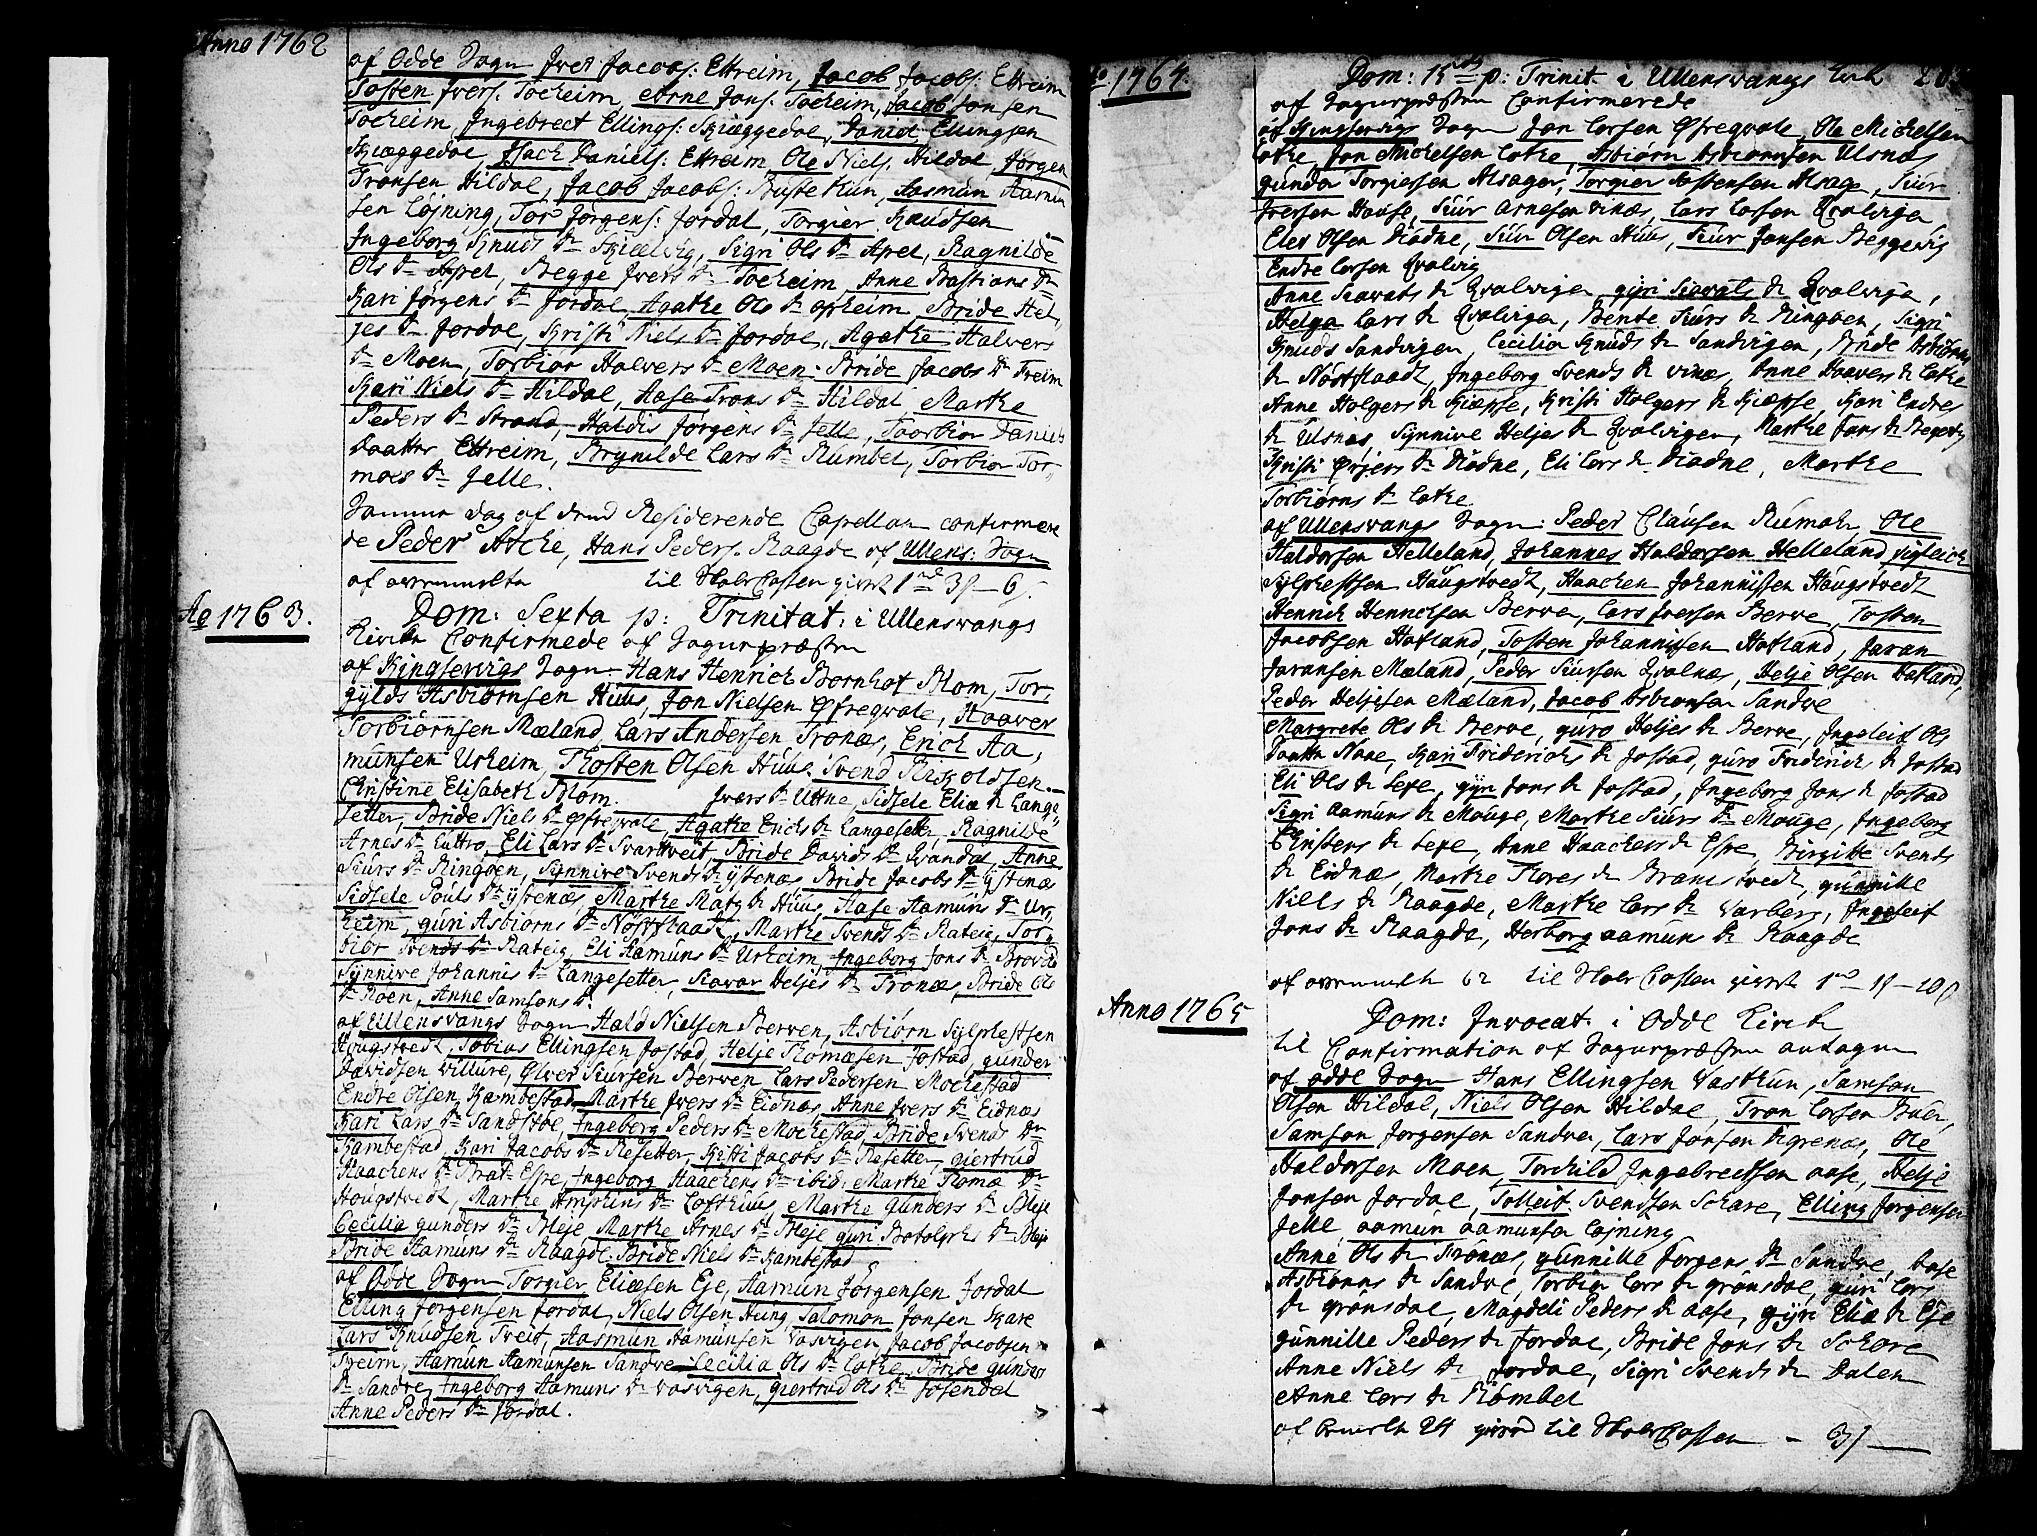 Anno 1762
af Odde Sogn Iver Jacobs: Ettreim, Jacob Jacobs: Ettreim
Tosten Ivers. Tocheim, Arne Jons. Tocheim, Jacob Jonsen
Tocheim, Ingebrect Ellings: Skiæggedal, Daniel Ellingsen
Skiæggedal, Isach Daniels: Ettreim, Ole Niels. Hildal, Jørgen
Tronsen Hildal, Jacob Jacobs: Bustetun, Aasmun Aasmun
sen Løjning, Tor Jørgens: Jordal, Torgier Knudsen
Ingeborg Knuds Dr Sigri Ols Dr Apel, Ragnilde
Ols Dr Apel, Begge Ivers Dr Tocheim Anne Bastians Dr
Kari Jørgens Dr Jordal, Agathe Ols Dr Opheim, Bride Hel,
jes Dr Jordal, Kristi Niels Dr Jordal, Agathe Halvers
Dr Moen, Torbior Halvers Dr Moen, Bride Jacobs Dr Freim
Kari Niels Dr Hildal, Aase Trons Dr Hildal Marthe
Peders Dr Strand, Haldis Jørgens Dr Jelle, Torbior Daniels
Daatter Ettreim, Brynilde Lars Dr Rumbel, Torbior Tor-
moes Dr Jelle.
Samme Dag af dend Residerende Capellan confirmere
de Peder Ache, Hans Peders. Raagde af Ullens: Sogn
af ovenmelte til Skole Cassen givet 1 rd 3 - 6
Ao 1763.
Dom: Sexta p: Trinitat: i Ullensvangs
Kirke Confirmede af Sognepræsten
af Kingservigs Sogn Hans Henrich Bornhof Blom, Tor,
gylds Asbiørnsen Huus, Jon Nielsen Espeqvale, Haaver
Torbiørnsen Mæland, Lars Andersen Tronæs, Erich Aa,
munsen Urheim, Thosten Olsen Huus. Svend Riskoldsen.
Christine Elisabeth Blom. Ivers Dr Uttne, Sidsele Eliæ Dr Lange,
setter, Bride Niels Dr Agathe Erichs Dr Langesetter, Ragnilde
Arnes Dr Luttro, Eli Lars Dr Svartveit, Bride Davids Dr Qvandal, Anne
Siurs Dr Ringøen, Synnive Svends Dr Ystenæs Bride Jacobs Dr Ystenæs
Sidsele Pouls Dr Ystenæs Marthe Dr Huus, Aase Aamuns Dr Ur,
heim, guri Asbiorns Dr Nøstflaadt, Marthe Svends Dr Rateig, Tor,
bior Svends Dr Rateig Eli Aamuns Dr Urheim, Ingeborg Jons Dr
Synnive Johannis Dr Langesetter, Siovor Heljes Dr Tronæs, Bride Ols
Dr Røen, Anne Samsons Dr
af Ullensvangs Sogn Hald Nielsen Berven, Asbiørn Sylfestsen
Hougstvedt, Tobias Ellingsen Jostad, Helje Thomæsen Jostad, gunder
Davidsen Villure, Olver Siursen Berven Lars Pedersen Mochestad
Endre Olsen Kambestad Marthe Ivers Dr Eidnæs, Anne Ivers Dr Eidnæs
Kari Lars Dr Sandstøe, Ingeborg Peders Dr Mochestad Bride Svends Dr
Kambestad, Kari Jacobs Dr Resetter, Kristi Jacobs Dr Resetter, giertrud
Haachens Dr Brat-Espe, Ingeborg Haachens Dr ibid: Marthe Thomæ Dr
Hougstvedt, Marthe Dr Lofthuus, Marthe Gunders Dr Bleje
Cecilia gunders Dr Bleje Marthe Arnes Dr Bleje guri Botolphs Dr Bleje
Bride Aamuns Dr Raagde, Bride Niels Dr Kambestad
af Odde Sogn Torgier Eliæsen Eje, Aamun Jørgensen Jordal
Elling Jorgensen Jordal, Niels Olsen Salomon Jonsen Skare
Lars Knudsen Freit, Aasmun Aamunsen Vasvigen, Jacob Jacobsen
Aamun Aamunsen Sandve Cecilia Ols Dr Lothe Bride gunder
Dr Sandve Ingeborg Aamuns Dr Vasvigen, giertrud Ols Dr Josendel
Anne Peders Dr Jordal.
1764.
Dom: 15de p: Trinit i Ullensvangs Kirk
af Sognepræsten Confirmerede
af Kingservigs Sogn Jon Larsen Espeqvale, Ole Michelsen
Lothe Jon Michelsen Lothe, Asbiørn Asbiørnsen Ulsnæs
gunder Torgiersen Alsager, Torgier Aastensen Alsager, Siur
Iversen Hause, Siur Arnesen Vinæs, Lars Larsen Qvalvigen
Elev Olsen Diødne, Siur Olsen Huus, Siur Jonsen Beggevig
Endre Larsen Qvalvig
Anne Siovats Dr Qvalvigen gyri Siovats Dr Qvalvigen,
Helga Lars Dr Qvalvigen, Bente Siurs Dr Ringøen, Sigri
Knuds Sandvigen, Cecilia Knuds Dr Sandvigen, Bride Asbiørns
Dr Nøstflaadt, Ingeborg Svends Dr Vinæs, Anne Haavers Dr Lothe
Anne Holgers Dr Kiæpse, Kristi Holgers Dr Kiæpse, Kari Endres
Dr Ulsnæs, Synnive Heljes Dr Qvalvigen, Marthe Jons Dr Begevig
Kristi Dr Diødne, Eli Lars Dr Diødne, Marthe
Torbiørns Dr Lothe
af Ullensvangs Sogn: Peder Clausen Rumohr, Ole
Haldorsen Helleland, Johannes Haldorsen Helleland
Sylfestsen Haugstvedt, Haachen Johannissen Haugstvedt
Henrich Henrichsen Berve, Lars Iversen Berve, Tosten
Jacobsen Hofland, Tosten Johannissen Hofland, Jaran
Jaransen Mæland, Peder Siursen Qvalnæs, Helje Olsen Hofland,
Peder Heljesen Mæland, Jacob Asbiornsen Sandve
Margrete Ols Dr Berve, guro Heljes Dr Berve, Ingeleif Ols
Daatter Naae, Kari Friderichs Dr Jostad, guro Friderich Dr Jostad
Eli Ols Dr Sexe, gyri Jons Dr Jostad, Ingeborg Jons Dr Jostad
Sigri Aamuns Dr Mouge, Marthe Siurs Dr Mouge, Ingeborg
Christens Dr Sexe, Anne Haachens Dr Espe, Birgitte Svends
Dr Eidnæs, Marthe Thores Dr Bramstvedt, gunnille
Niels Dr Raagde, Marthe Lars Dr Varberg, Ingeleif
Jons Dr Raagde, Herborg Aamuns Dr Raagde
af ovenmelte 62 til Skole Cassen givet 1 rd 1 - 10
Anno 1765
Dom: Invocat: i Odde Kirch
til Confirmation af Sognepræsten antagen
af Odde Sogn Hans Ellingsen Vastun, Samson
Olsen Hildal, Niels Olsen Hildal, Tron Larsen
Samson Jorgensen Sandve, Lars Jonsen Digrenæs, Ole
Haldorsen Moen, Torchild Ingebrechtsen Aase, Helje
Jonsen Jordal, Tolleif Svendsen Schare, Elling Jorgensen
Jelle, Aamun Aamunsen Løjning
Anne Ols Dr Tronæs, gunnille Jorgens Dr Sandve, Aase
Asbiørns Dr Sandve, Torbior Lars Dr gronsdal, guri Lars
Dr gronsdal, Magdeli Peders Dr Aase, gyri Eliæ Dr Eje
gunnille Peders Dr Jordal, Bride Jons Dr Schare
Anne Niels Dr Jordal, Sigri Svends Dr Dalen
Anne Lars Dr Rømbel
af bemelte 24 givet til Skole Cassen - 3